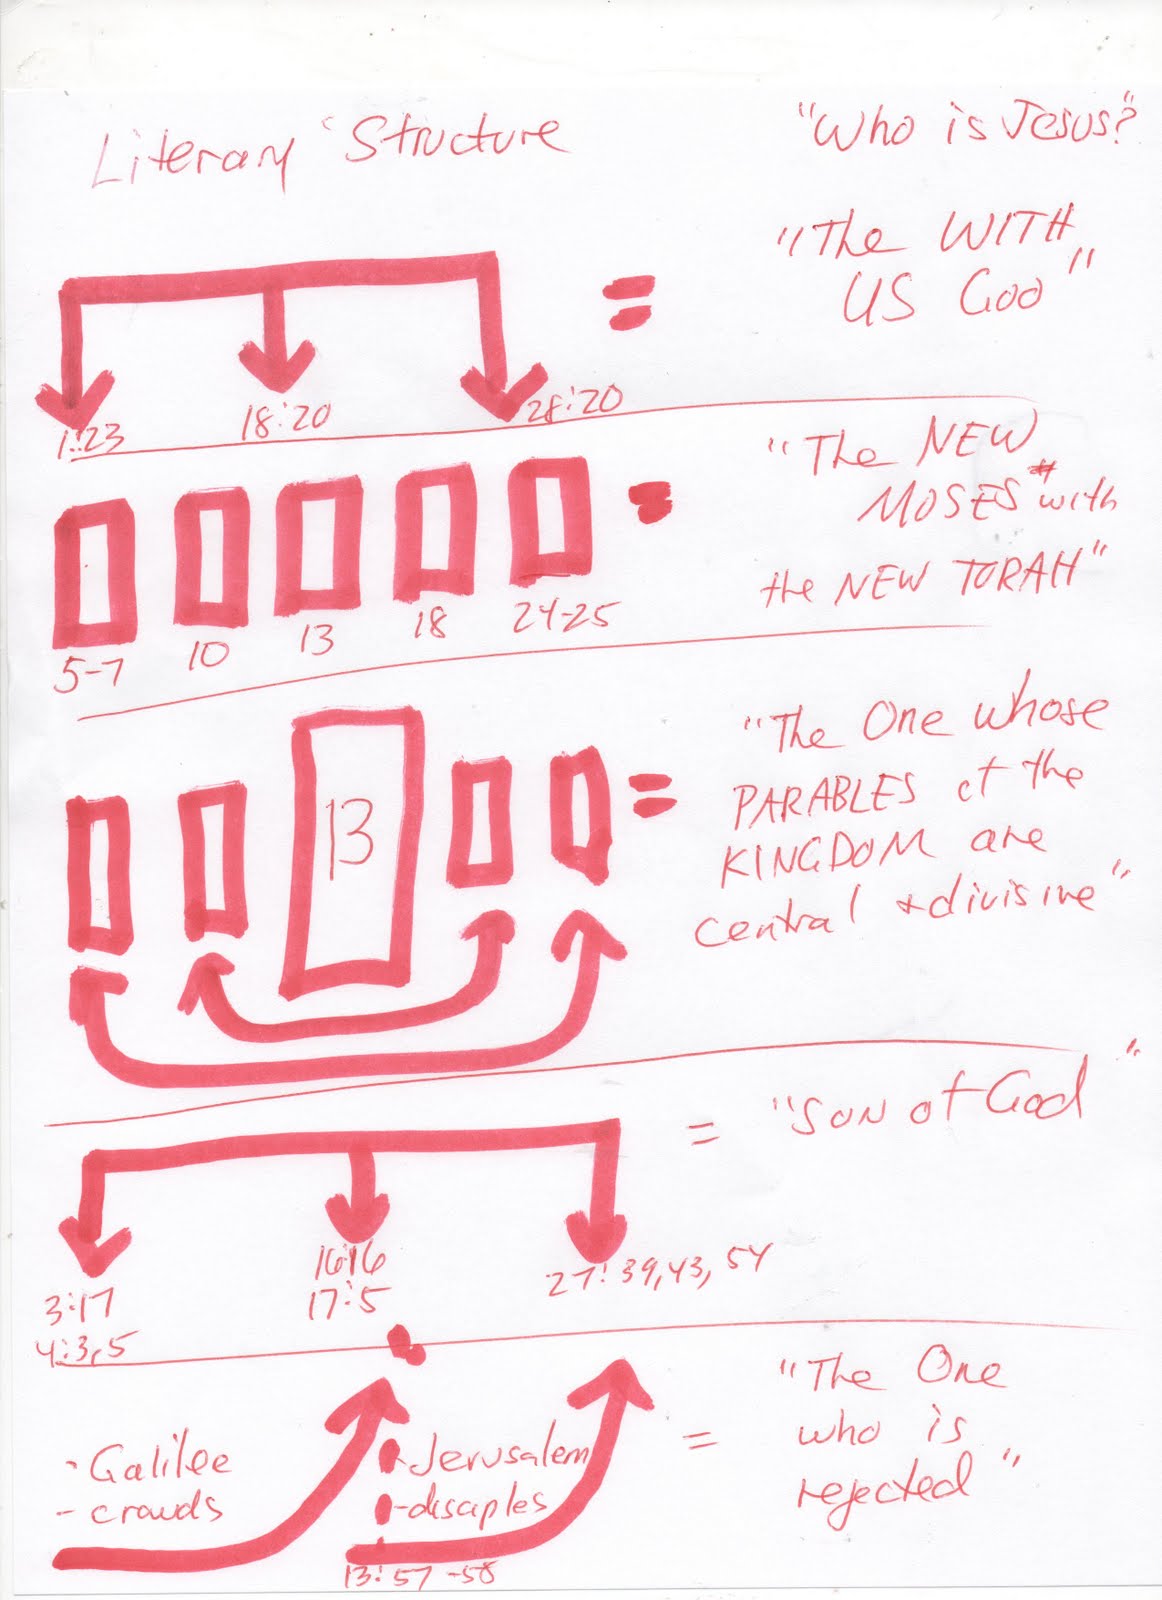 Literary Structure
"Who is Jesus?"
"The WITH
US God"
1:23
18:20
28:20
"The NEW
MOSES with
the NEW TORAH"
5-7
10
13
18
24-25
"The One whose
PARABLES of the
KINGDOM are
central + divisive"
13
"Son of God"
=
3:17
4:3,5
16:16
17:5
27:39,43,54
"The One
who is
rejected"
=
- Galilee
- crowds
- Jerusalem
- disciples
13:57-58